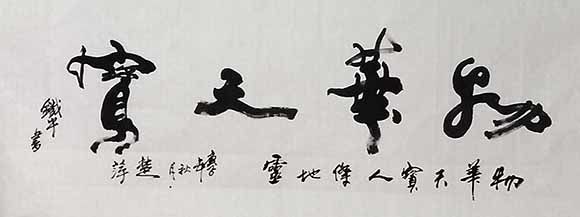 物華天寶
物華天寶人傑地靈
秋月
楚萍
鐵牛書